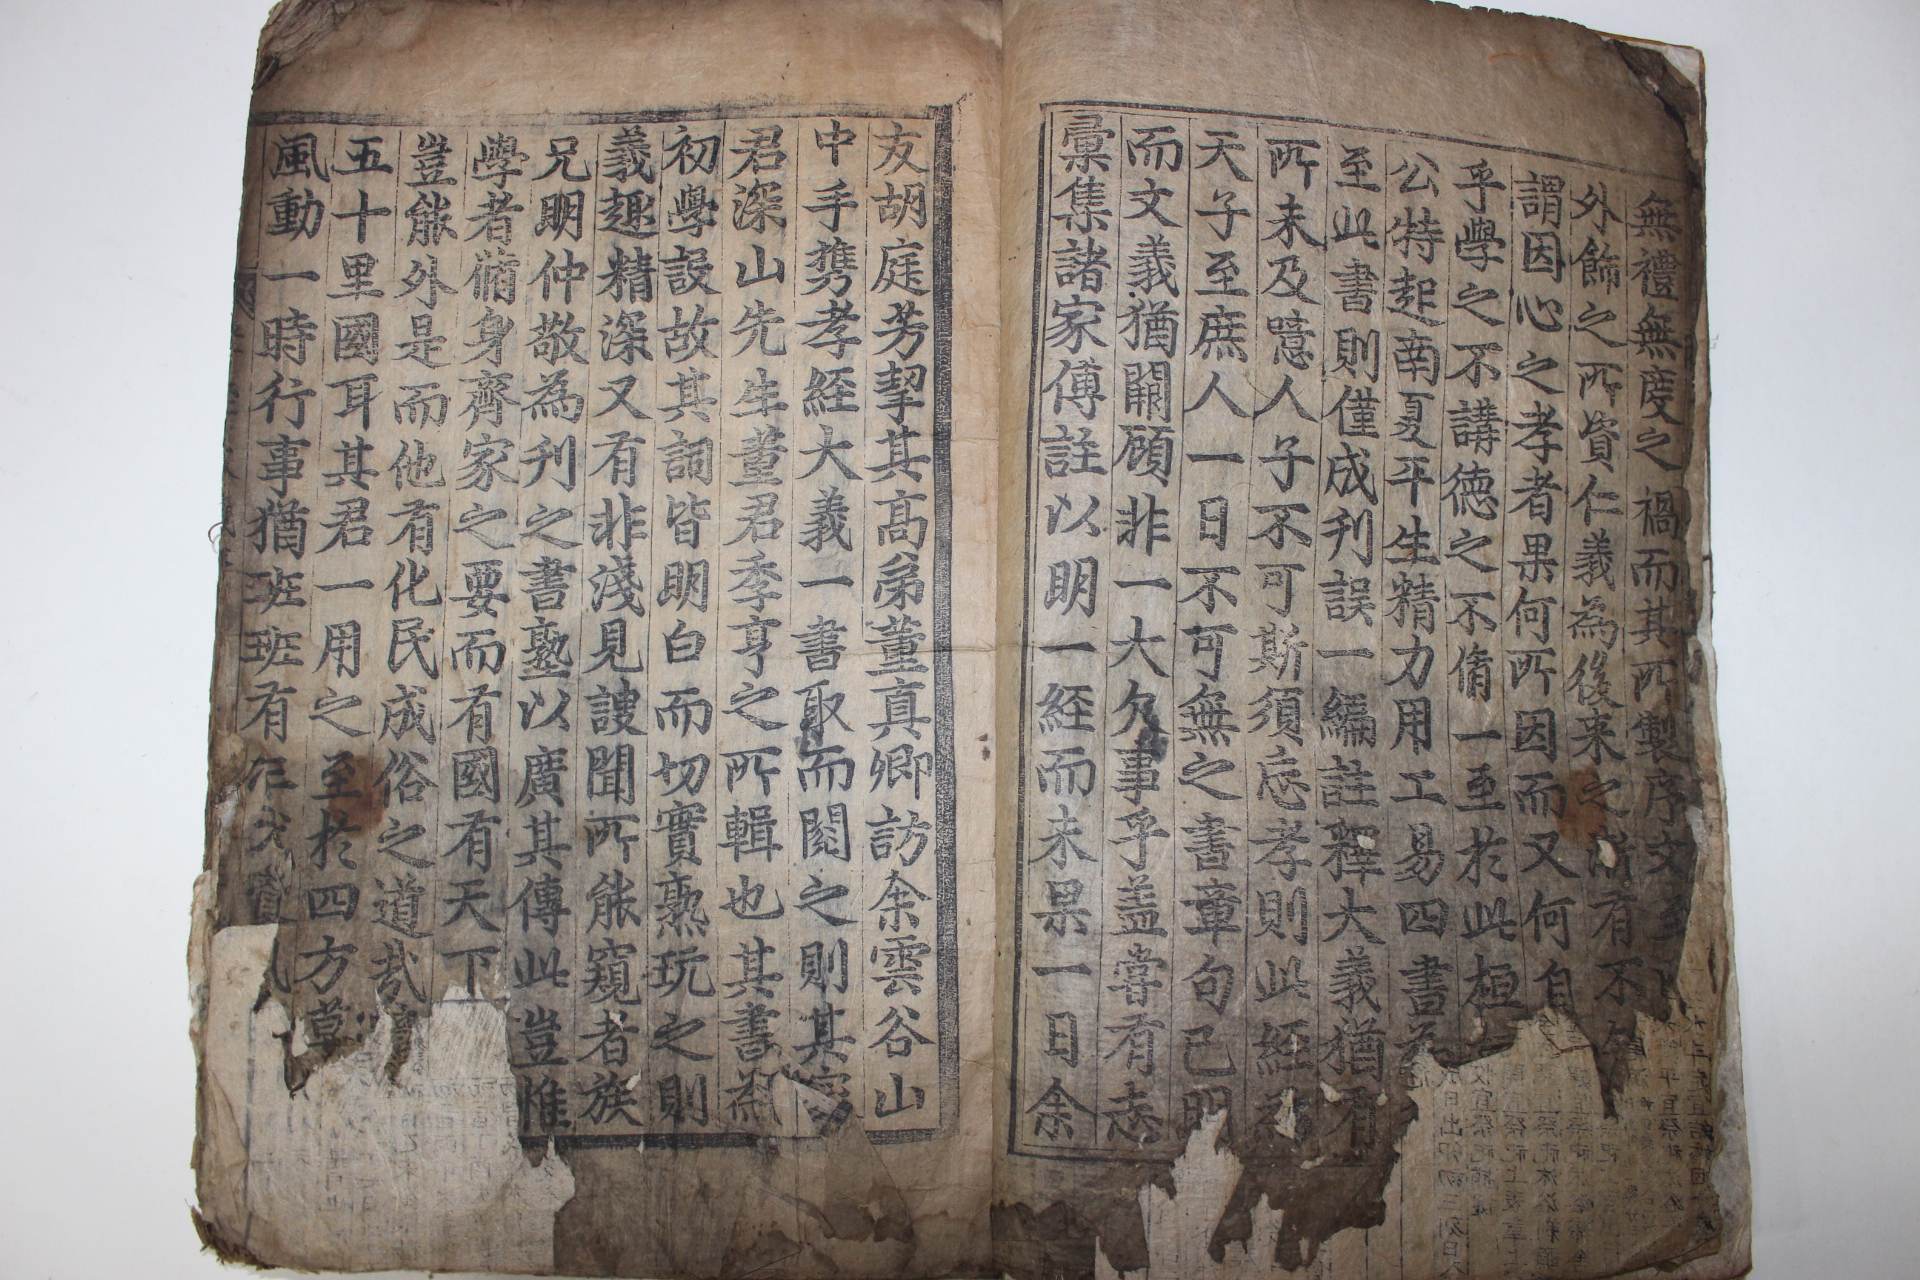 無禮無度之禍而其所製序文
外飾之所資仁義為後来之所有不
謂因心之孝者果何所因而又何自
乎學之不講德之不脩一至於此桓
公特起南夏平生精力用工易四書
至此書則僅成刊誤一編註釋大義猶有
所未及噫人子不可斯須忘孝則此經
天子至庶人一日不可無之書章句已明
而文義猶闕顧非一大欠事乎盖嘗有志
彙集諸家傅註以明一経而未果一日余
友胡庭芳挈其高弟董真卿訪余雲谷山
中手携孝経大義一書取而閱之則其
君深山先生董君季亨之所輯也其書
初學設故其詞皆明白而切實熟玩之則
義趣精深又有非淺見謏聞所能窺者族
兄明仲敬為刋之書塾以廣其傳此豈惟
學者脩身齊家之要而有國有天下
豈能外是而他有化民成俗之道哉
五十里國耳其君一用之至於四方草
風動一時行事猶班班有